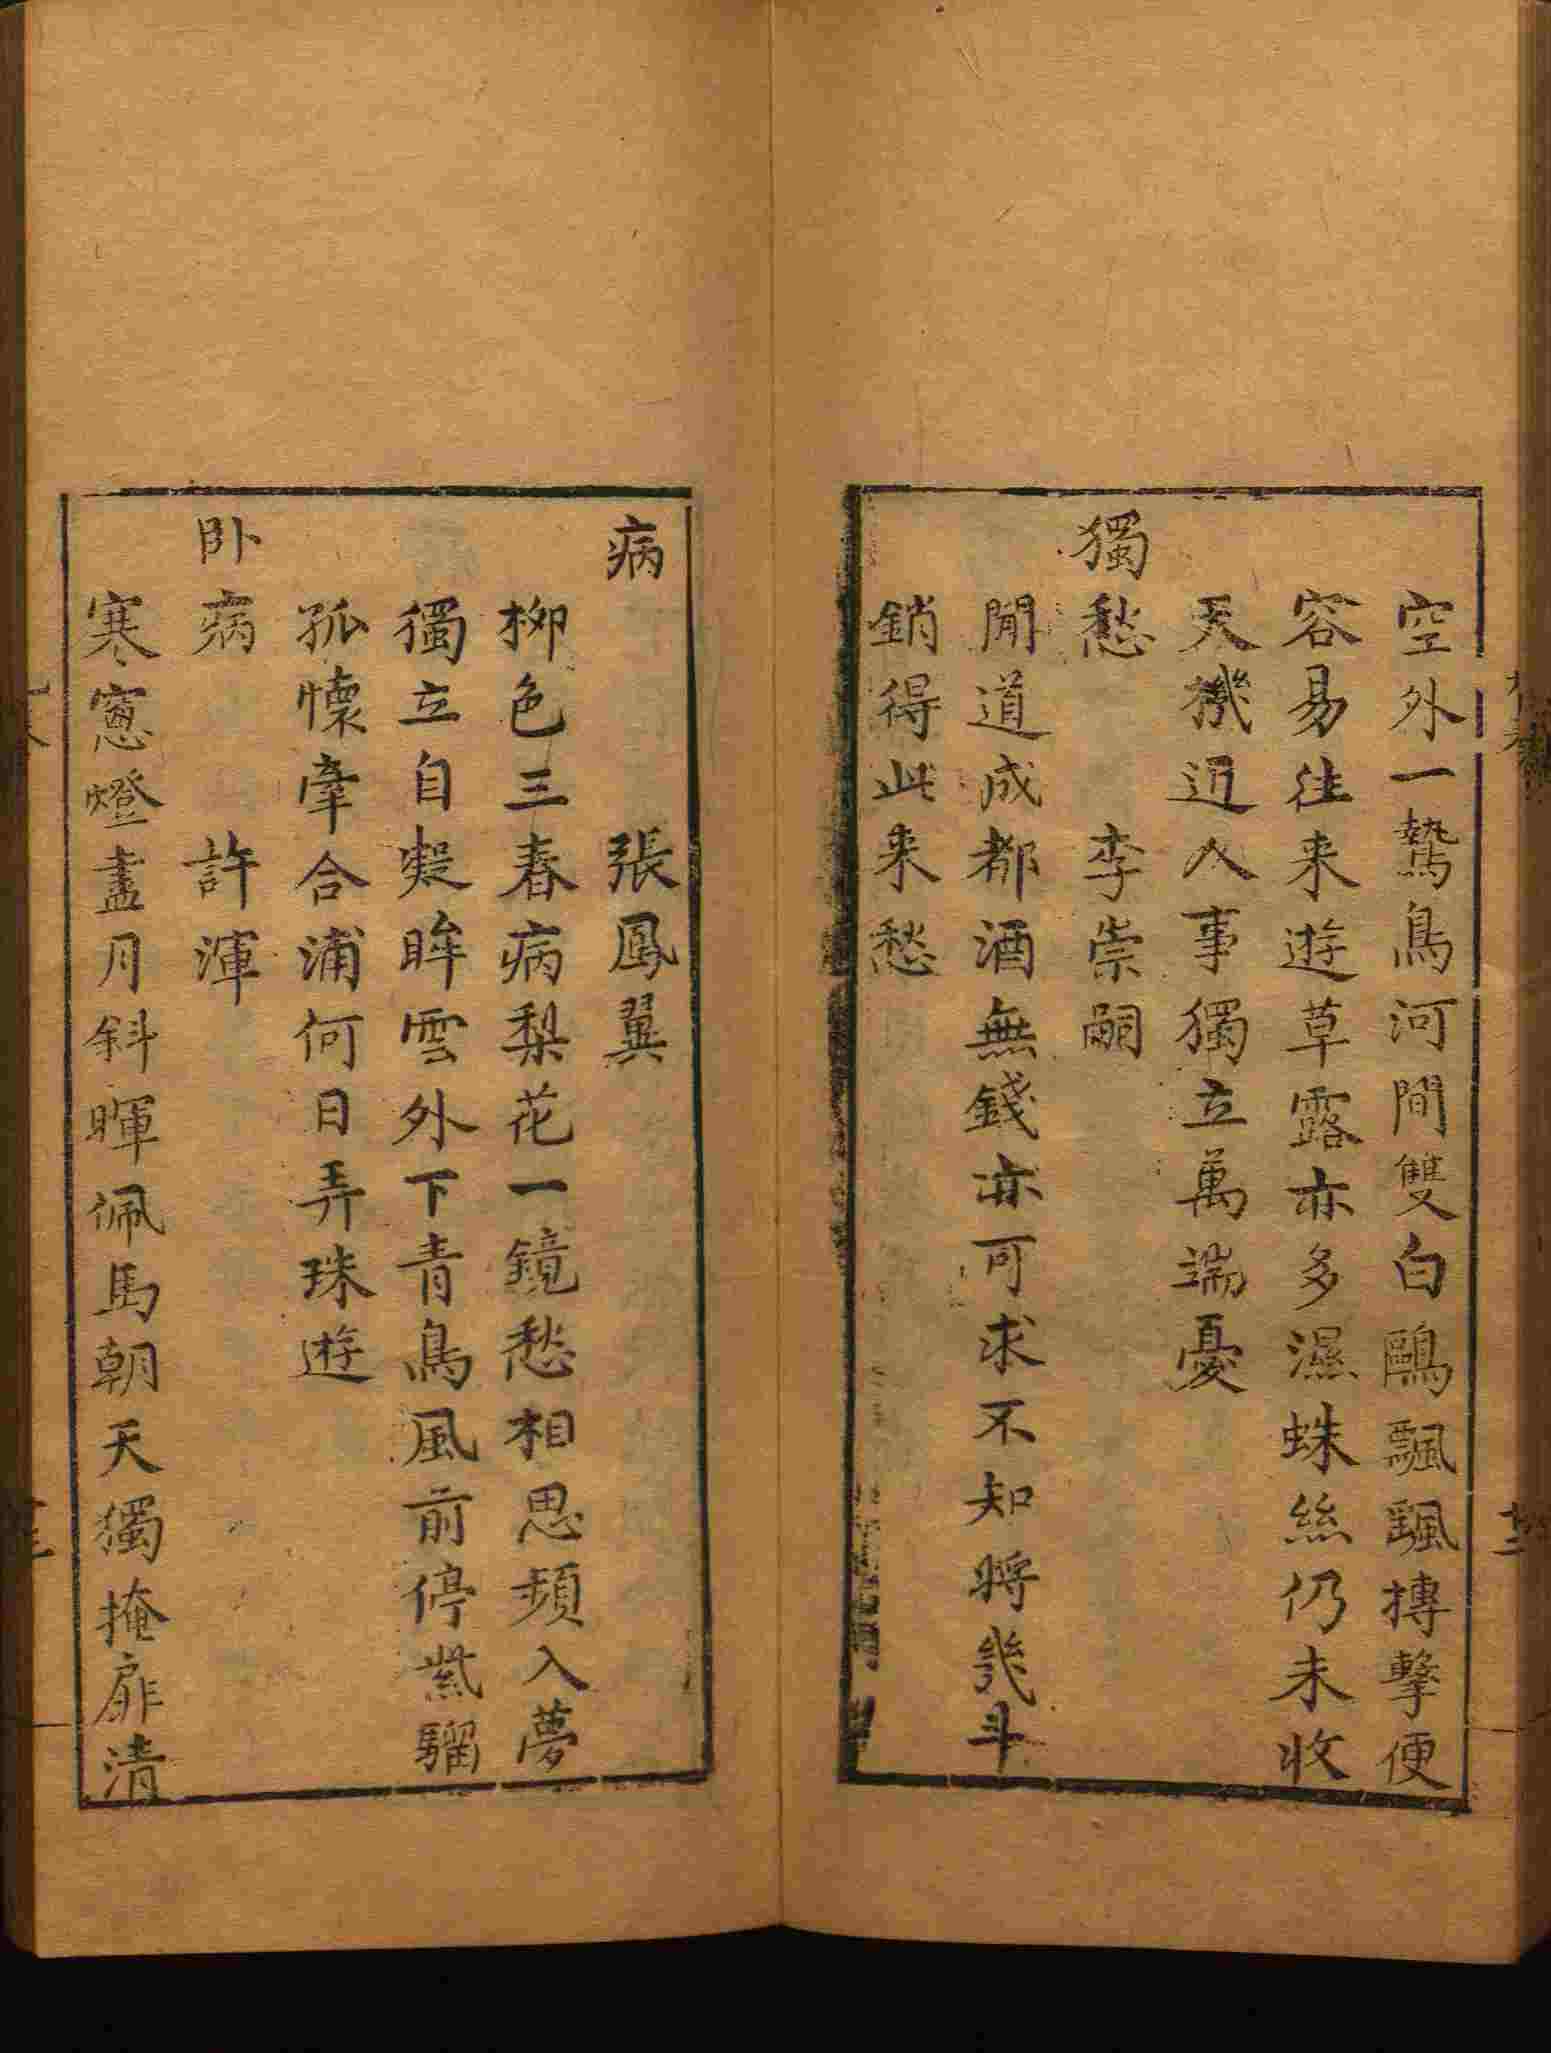 空外一鷙鳥河間雙白鷗飄飖搏擊便
容易往来遊草露亦多濕蛛絲仍未收
天機近人事獨立萬端憂
獨愁 李崇嗣
聞道成都酒無錢亦可求不知將幾斗
銷得此来愁
病 張鳳翼
柳色三春病梨花一鏡愁相思頻入夢
獨立自凝眸雲外下青鳥風前停紫騮
孤懷牽合浦何日弄珠遊
卧病 許渾
寒窻燈盡月斜暉佩馬朝天獨掩扉清